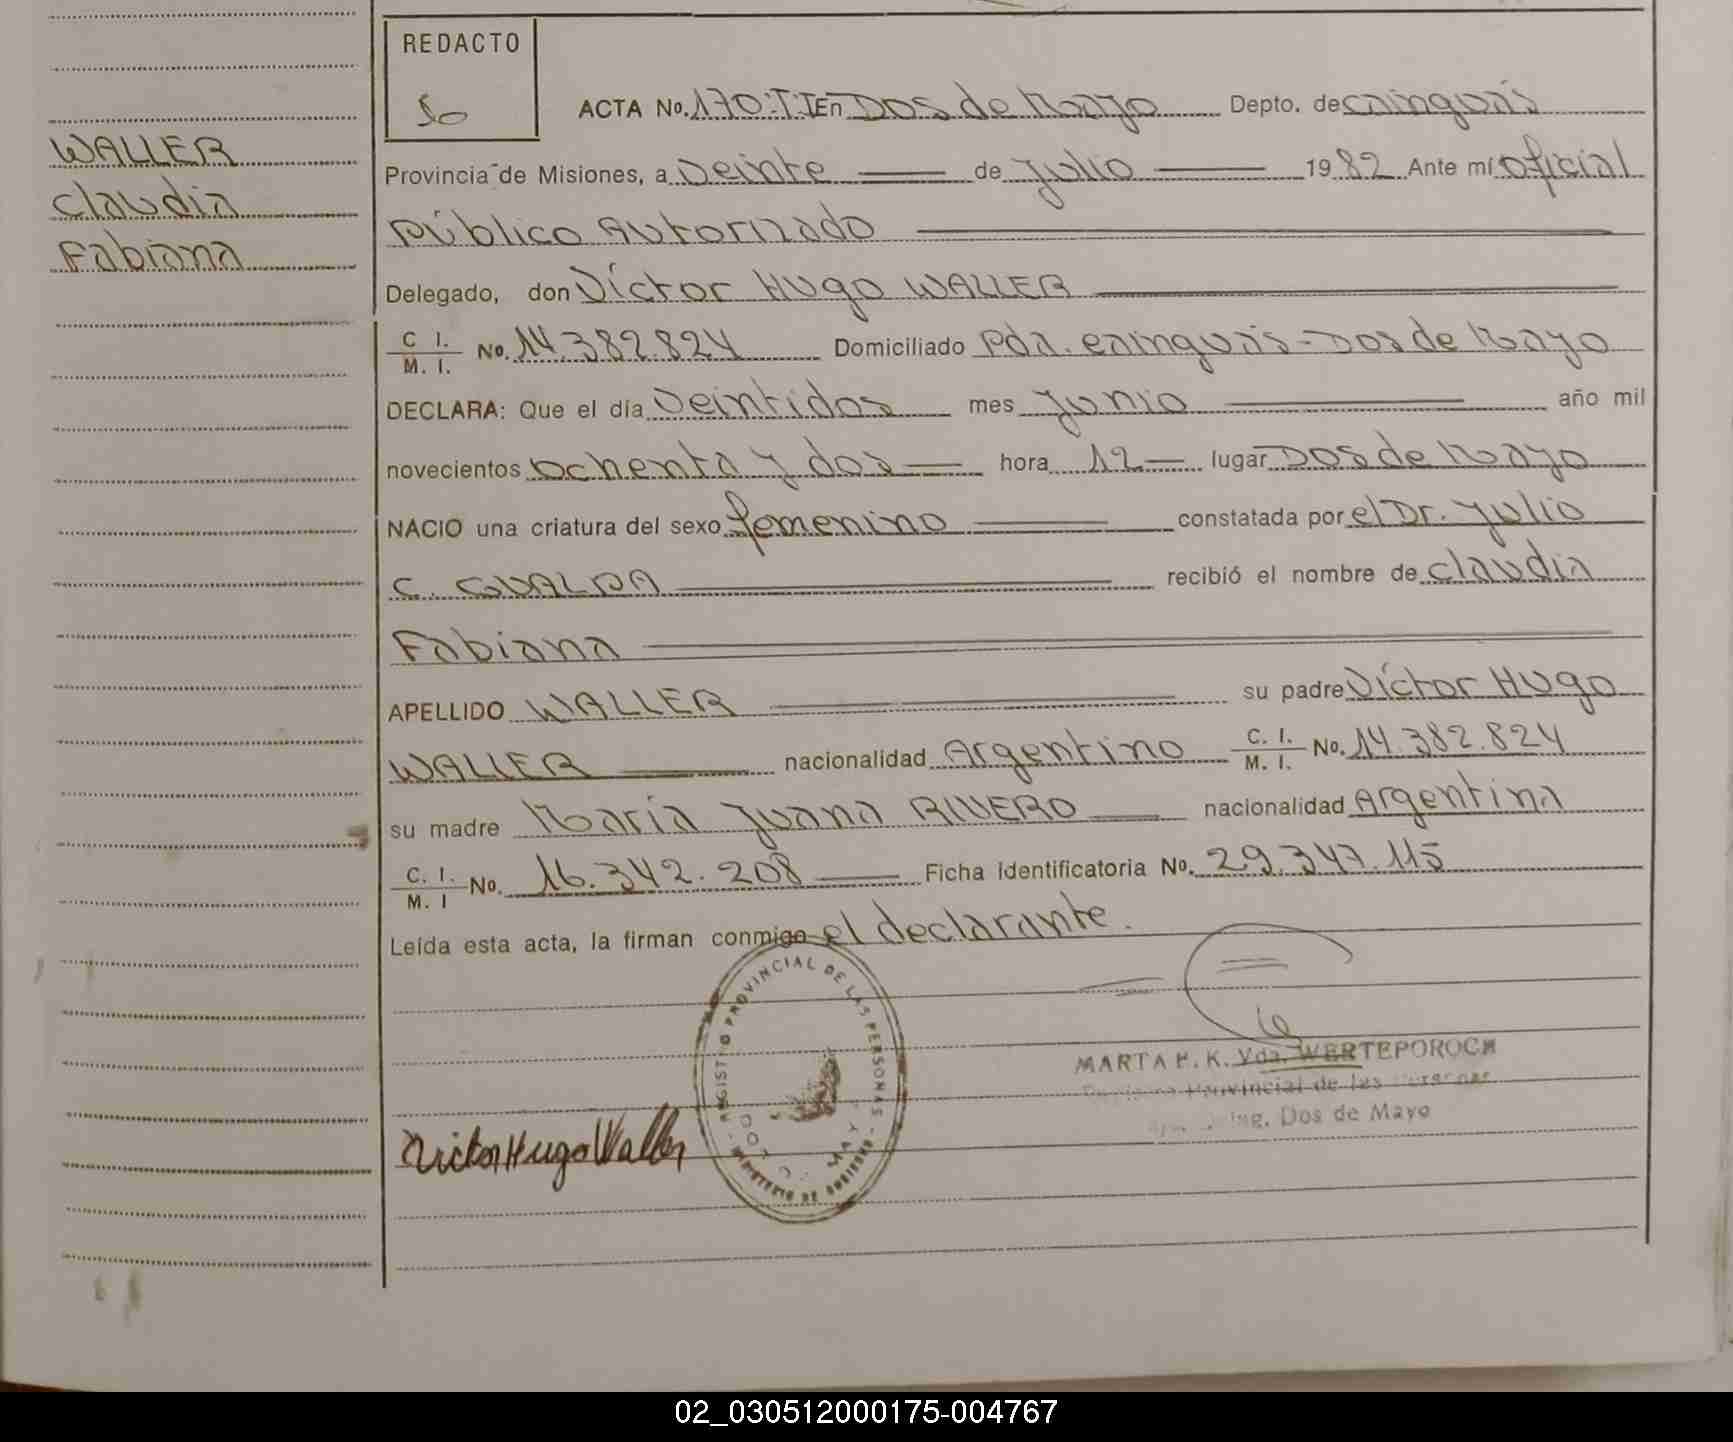 REDACTO
ACTA No. 170-T-I En Dos de Mayo Depto. de Cainguás
WALLER
Claudia
Fabiana
Provincia de Misiones, a veinte de Julio 1982 Ante mí oficial
Público Autorizado
Delegado, don Víctor Hugo WALLER
C. I. M. I. No. 14.382.824 Domiciliado Pda. Cainguás - Dos de Mayo
DECLARA: Que el día veintidos mes Junio año mil
novecientos ochenta y dos hora 12 lugar Dos de Mayo
NACIO una criatura del sexo femenino constatada por el Dr. Julio
C. GUALPA recibió el nombre de Claudia
Fabiana
APELLIDO WALLER su padre Víctor Hugo
WALLER nacionalidad Argentino C. I. M. I. No. 14.382.824
su madre María Juana RIVERO nacionalidad Argentina
C. I. M. I No. 16.342.208 Ficha Identificatoria No. 29.347.115
Leída esta acta, la firman conmigo el declarante.
REGISTRO PROVINCIAL DE LAS PERSONAS - MINISTERIO DE GOBIERNO -
MARTA K. Vda. WERTEPOROCH
Provincial de las
Dos de Mayo
Victor Hugo Waller
02_030512000175-004767